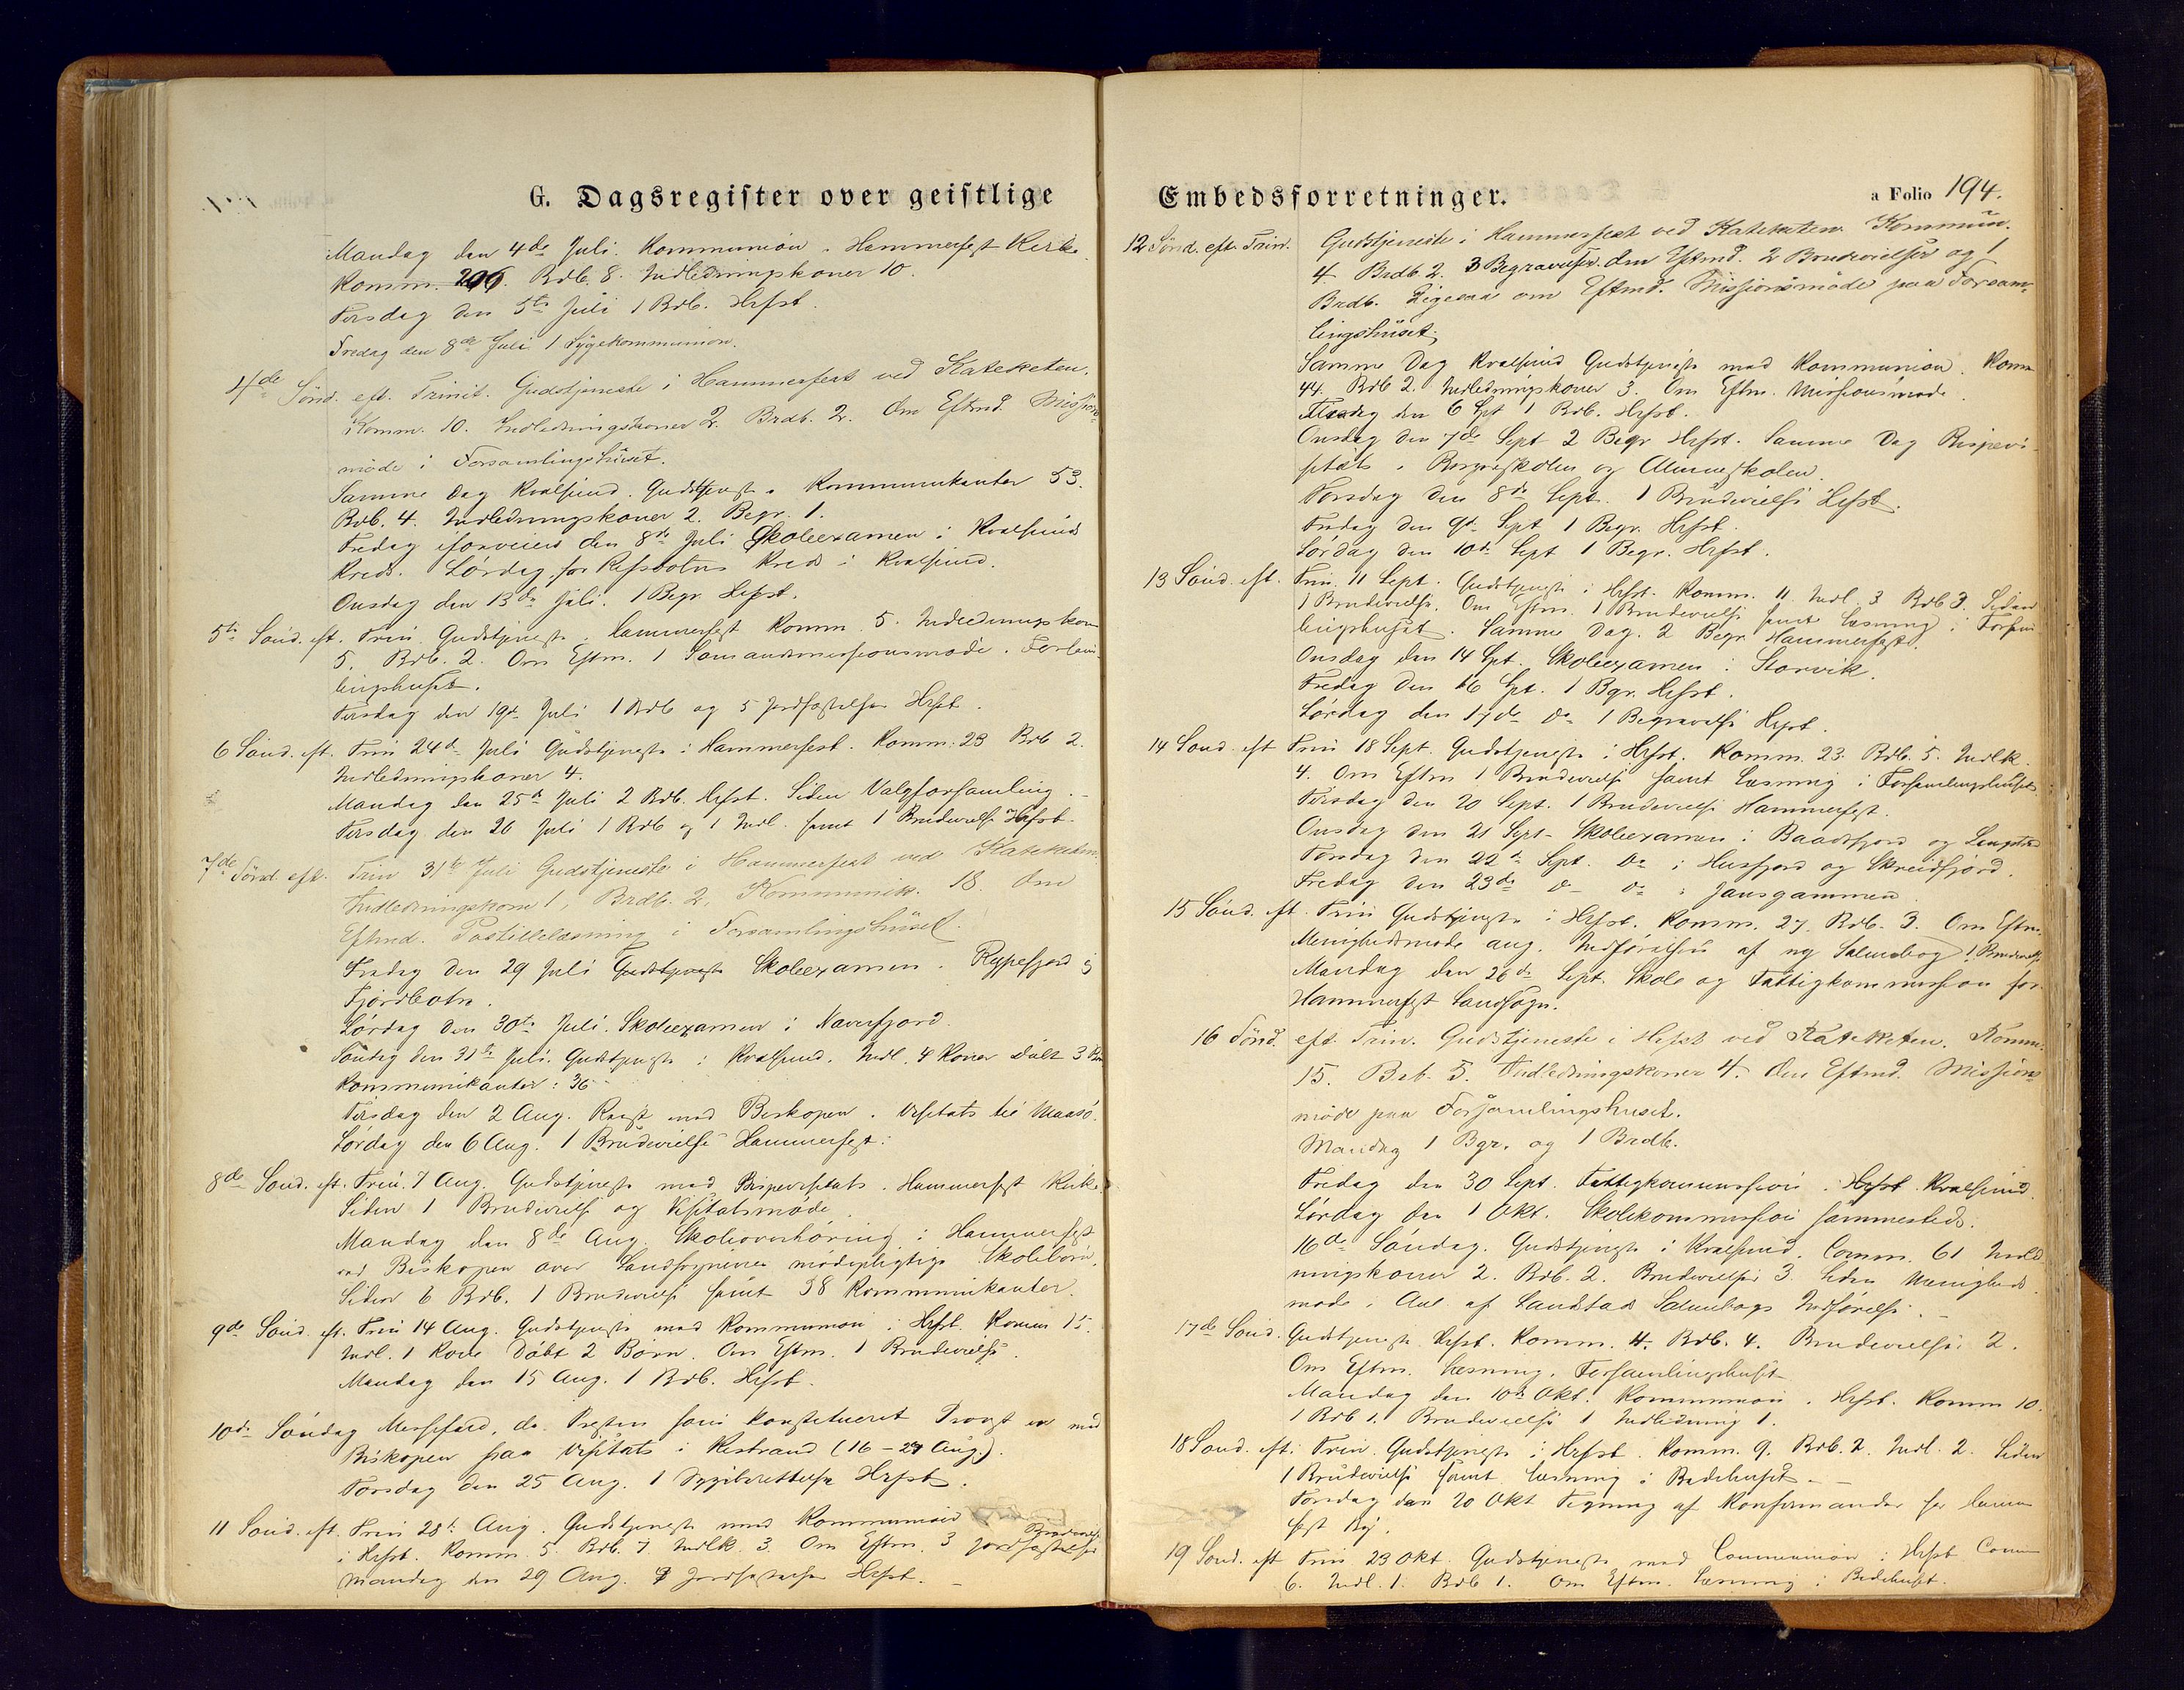 G. Dagsregister over geistlige
Mandag den 4de Juli. Kommunion. Hammerfest Kirke.
Komm. 206. Brdb. 8. Indledningskoner 10.
Tirsdag den 5te Juli 1 Brdb. Hrfst.
Fredag den 8de Juli 1 Sygekommunion.
4de Sönd. eft. Trinit. Gudstjeneste i Hammerfest ved Kateketen.
Komm. 10. Indledningskoner 2. Brdb. 2. Om Eftmd. Missions-
möde i Forsamlingshuset.
Samme Dag Kvalsund. Gudstjeneste. Kommunikanter 53.
Brb. 4. Indledningskoner 2. Begr. 1.
Fredag iforveien den 8de Juli Skoleexamen i Kvalsunds
Kreds. Lördag for Refsbotns Kreds i Kvalsund.
Onsdag den 13de Juli. 1 Begr. Hrfst.
5te Sönd. eft. Trin. Gudstjeneste. Hammerfest Komm. 5. Indledningskon
5. Brb. 2. Om Eftm. 1 Sömandsmissionsmöde. Forsam-
lingshuset.
Tirsdag den 19de Juli 1 Brb og 5 Jordfæstelser Hrfst.
6 Sönd. eft. Trin 24de Juli Gudstjeneste i Hammerfest. Komm. 23 Brb 2.
Indledningskoner 4.
Mandag den 25de Juli 2 Brb. Hrfst. Siden Valgforsamling.
Tirsdag den 26 Juli 1 Brb og 1 Indl. samt 1 Brudevielse Hrfst.
7de Sönd. eft. Trin 31te Juli Gudstjeneste i Hammerfest ved Kateketen.
Indledningskone 1, Brdb. 2, Kommunik. 18. Om
Eftmd. Postillelæsning i Forsamlingshuset.
Fredag den 29 Juli Gudstjeneste Skoleexamen. Rypefjord og
Fjordbotn.
Lördag den 30te Juli. Skoleexamen i Naverfjord.
Söndag den 31te Juli. Gudstjeneste i Kvalsund. Indl. 4 Koner Döbt 3
Kommunikanter: 36
Tirsdag den 2 Aug. Reist med Biskopen. Visitats til Maasö.
Lördag den 6 Aug. 1 Brudevielse Hammerfest.
8de Sönd. eft. Trin. 7 Aug. Gudstjeneste med Bispevisitats. Hammerfest Kirke.
Siden 1 Brudevielse og Visitatsmöde.
Mandag den 8de Aug. Skoleoverhöring i Hammerfest
ved Biskopen over Landsognenes mödepligtige Skolebörn.
Siden 6 Brb. 1 Brudevielse samt 38 Kommunikanter.
9de Sönd. eft. Trin 14 Aug. Gudstjeneste med Kommunion i Hrfst. Komm 15.
Indl. 1 Kone Döbt 2 Börn. Om Eftm. 1 Brudevielse.
Mandag den 15 Aug. 1 Brb. Hrfst.
10de Söndag Messefald, da Presten som konstitueret Provst er med
Biskopen paa Visitats i Kistrand (16-27 Aug.).
Torsdag den 25 Aug. 1 Hrfst.
11 Sönd. eft. Trin 28de Aug. Gudstjeneste med Kommunion
i Hrfst. Komm. 5. Brb. 7. Indlk. 3. Om Eftm. 3 Jordfæstelser
Mandag den 29 Aug. Jordfæstelse Hrfst.
Embedsforretninger.
a Folio 194.
12 Sönd. eft. Trin. Gudstjeneste i Hammerfest ved Kateketen. Kommun.
4. Brdb 2. 3 Begravelser. Om Eftmd. 2 Brudevielser og 1
Brdb. Ligesaa om Eftmd. Missionsmöde paa Forsam-
lingshuset.
Samme Dag Kvalsund Gudstjeneste med Kommunion. Komm
44. Brb 2. Indledningskoner 3. Om Eftm. Missionsmöde.
Tirsdag den 6 Spt 1 Brb. Hrfst.
Onsdag den 7de Sept 2 Begr Hrfst. Samme Dag Bispevi-
sitats. Borgerskolen og Almueskolen.
Torsdag den 8de Sept. 1 Brudevielse Hrfst.
Fredag den 9de Sept 1 Begr. Hrfst.
Lördag den 10de Sept 1 Begr. Hrfst.
13 Sönd. eft. Trin. 11 Sept. Gudstjeneste i Hrfst. Komm. 11. Indl 3 Brb 3. Siden
1 Brudevielse. Om Eftm. 1 Brudevielse samt Læsning i Forsam
lingshuset. Samme Dag. 2 Begr. Hammerfest.
Onsdag den 14 Spt. Skoleexamen i Storvik.
Fredag den 16 Spt. 1 Bgr. Hrfst.
Lördag den 17de Do 1 Begravelse Hrfst.
14 Sönd. eft Trin 18 Sept. Gudstjeneste i Hrfst. Komm. 23. Brb. 5. Indlk.
4. Om Eftm 1 Brudevielse samt Læsning i Forsamlingshuset
Tirsdag den 20 Sept. 1 Brudevielse Hammerfest.
Onsdag den 21 Sept. Skoleexamen i Baadsfjord og
Torsdag den 22de Sept. Do i Husfjord og Skreidfjord.
Fredag den 23de Do Do i Jansgammen.
15 Sönd. eft. Trin Gudstjeneste i Hrfst. Komm. 27. Brb. 3. Om Eftm.
Menighedsmöde ang. Indförelsen af ny Salmebog. 1 Brudevielse
Mandag den 26de Sept. Skole og Fattigkommission for
Hammerfest Landsogn.
16 Sönd. eft. Trin. Gudstjeneste i Hrfst ved Kateketen. Komm.
15. Brb. 5. Indledningskoner 4. Om Eftmd. Missions-
möde paa Forsamlingshuset.
Mandag 1 Bgr. og 1 Brdb.
Fredag den 30 Sept. Fattigkommission. Hrfst. Kvalsund.
Lördag den 1 Okt. Skolekommission sammesteds.
16de Söndag. Gudstjeneste i Kvalsund. Comm. 61 Indled
ningskoner 2. Brb. 2. Brudevielser 3. Siden Menigheds
möde. Anl. af Landstads Salmebogs Indförelse.
17de Sönd. Gudstjeneste Hrfst. Komm. 4. Brb. 4. Brudevielser 2.
Om Eftm. Læsning. Forsamlingshuset
Mandag den 10de Okt. Kommunion. Hrfst. Komm 10.
1 Brb 1. Brudevielse 1 Indledning 1.
18 Sönd. eft. Trin. Gudstjeneste i Hrfst. Komm. 9. Brb. 2. Indl. 2. Siden
1 Brudevielse samt Læsning i Bedehuset.
Torsdag den 20 Okt Tegning af Konfirmander for Hammer
fest By.
19 Sönd. eft Trin 23 Okt. Gudstjeneste med Communion i Hrfst Comm
6. Indl. 1. Brb 1. Om Eftm. Læsning i Bedehuset.